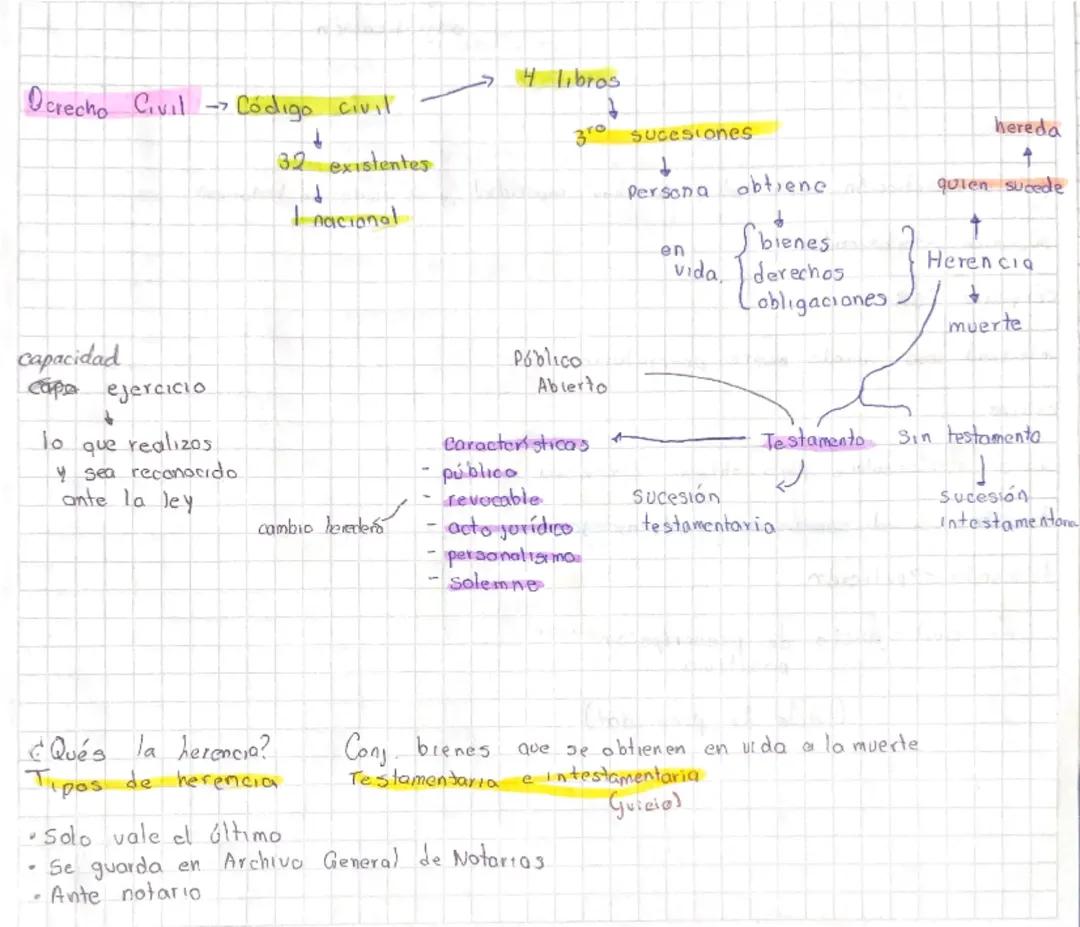 Derecho Civil → Código civil → 4 libros
↓
3ro sucesiones
↓
32 existentes
↓
1 nacional
Persona obtiene
↓
en vida
bienes
derechos
obligaciones
hereda
↑
quien sucede
↑
Herencia
↓
muerte
capacidad
ejercicio
↓
lo que realizos
y sea reconocido
ante la ley
Público
Abierto
Testamento
Sin testamento
Sucesión
testamentaria
Sucesión
intestamentaria
Características
- público
- revocable
- acto jurídico
- personalisimo
- solemne
cambio heredero
¿Qués la herencia? Conj. bienes que se obtienen en vida a la muerte
Tipos de herencia Testamentaria e intestamentaria
(juicio)
• Solo vale el último
• Se guarda en Archivo General de Notarias
• Ante notario